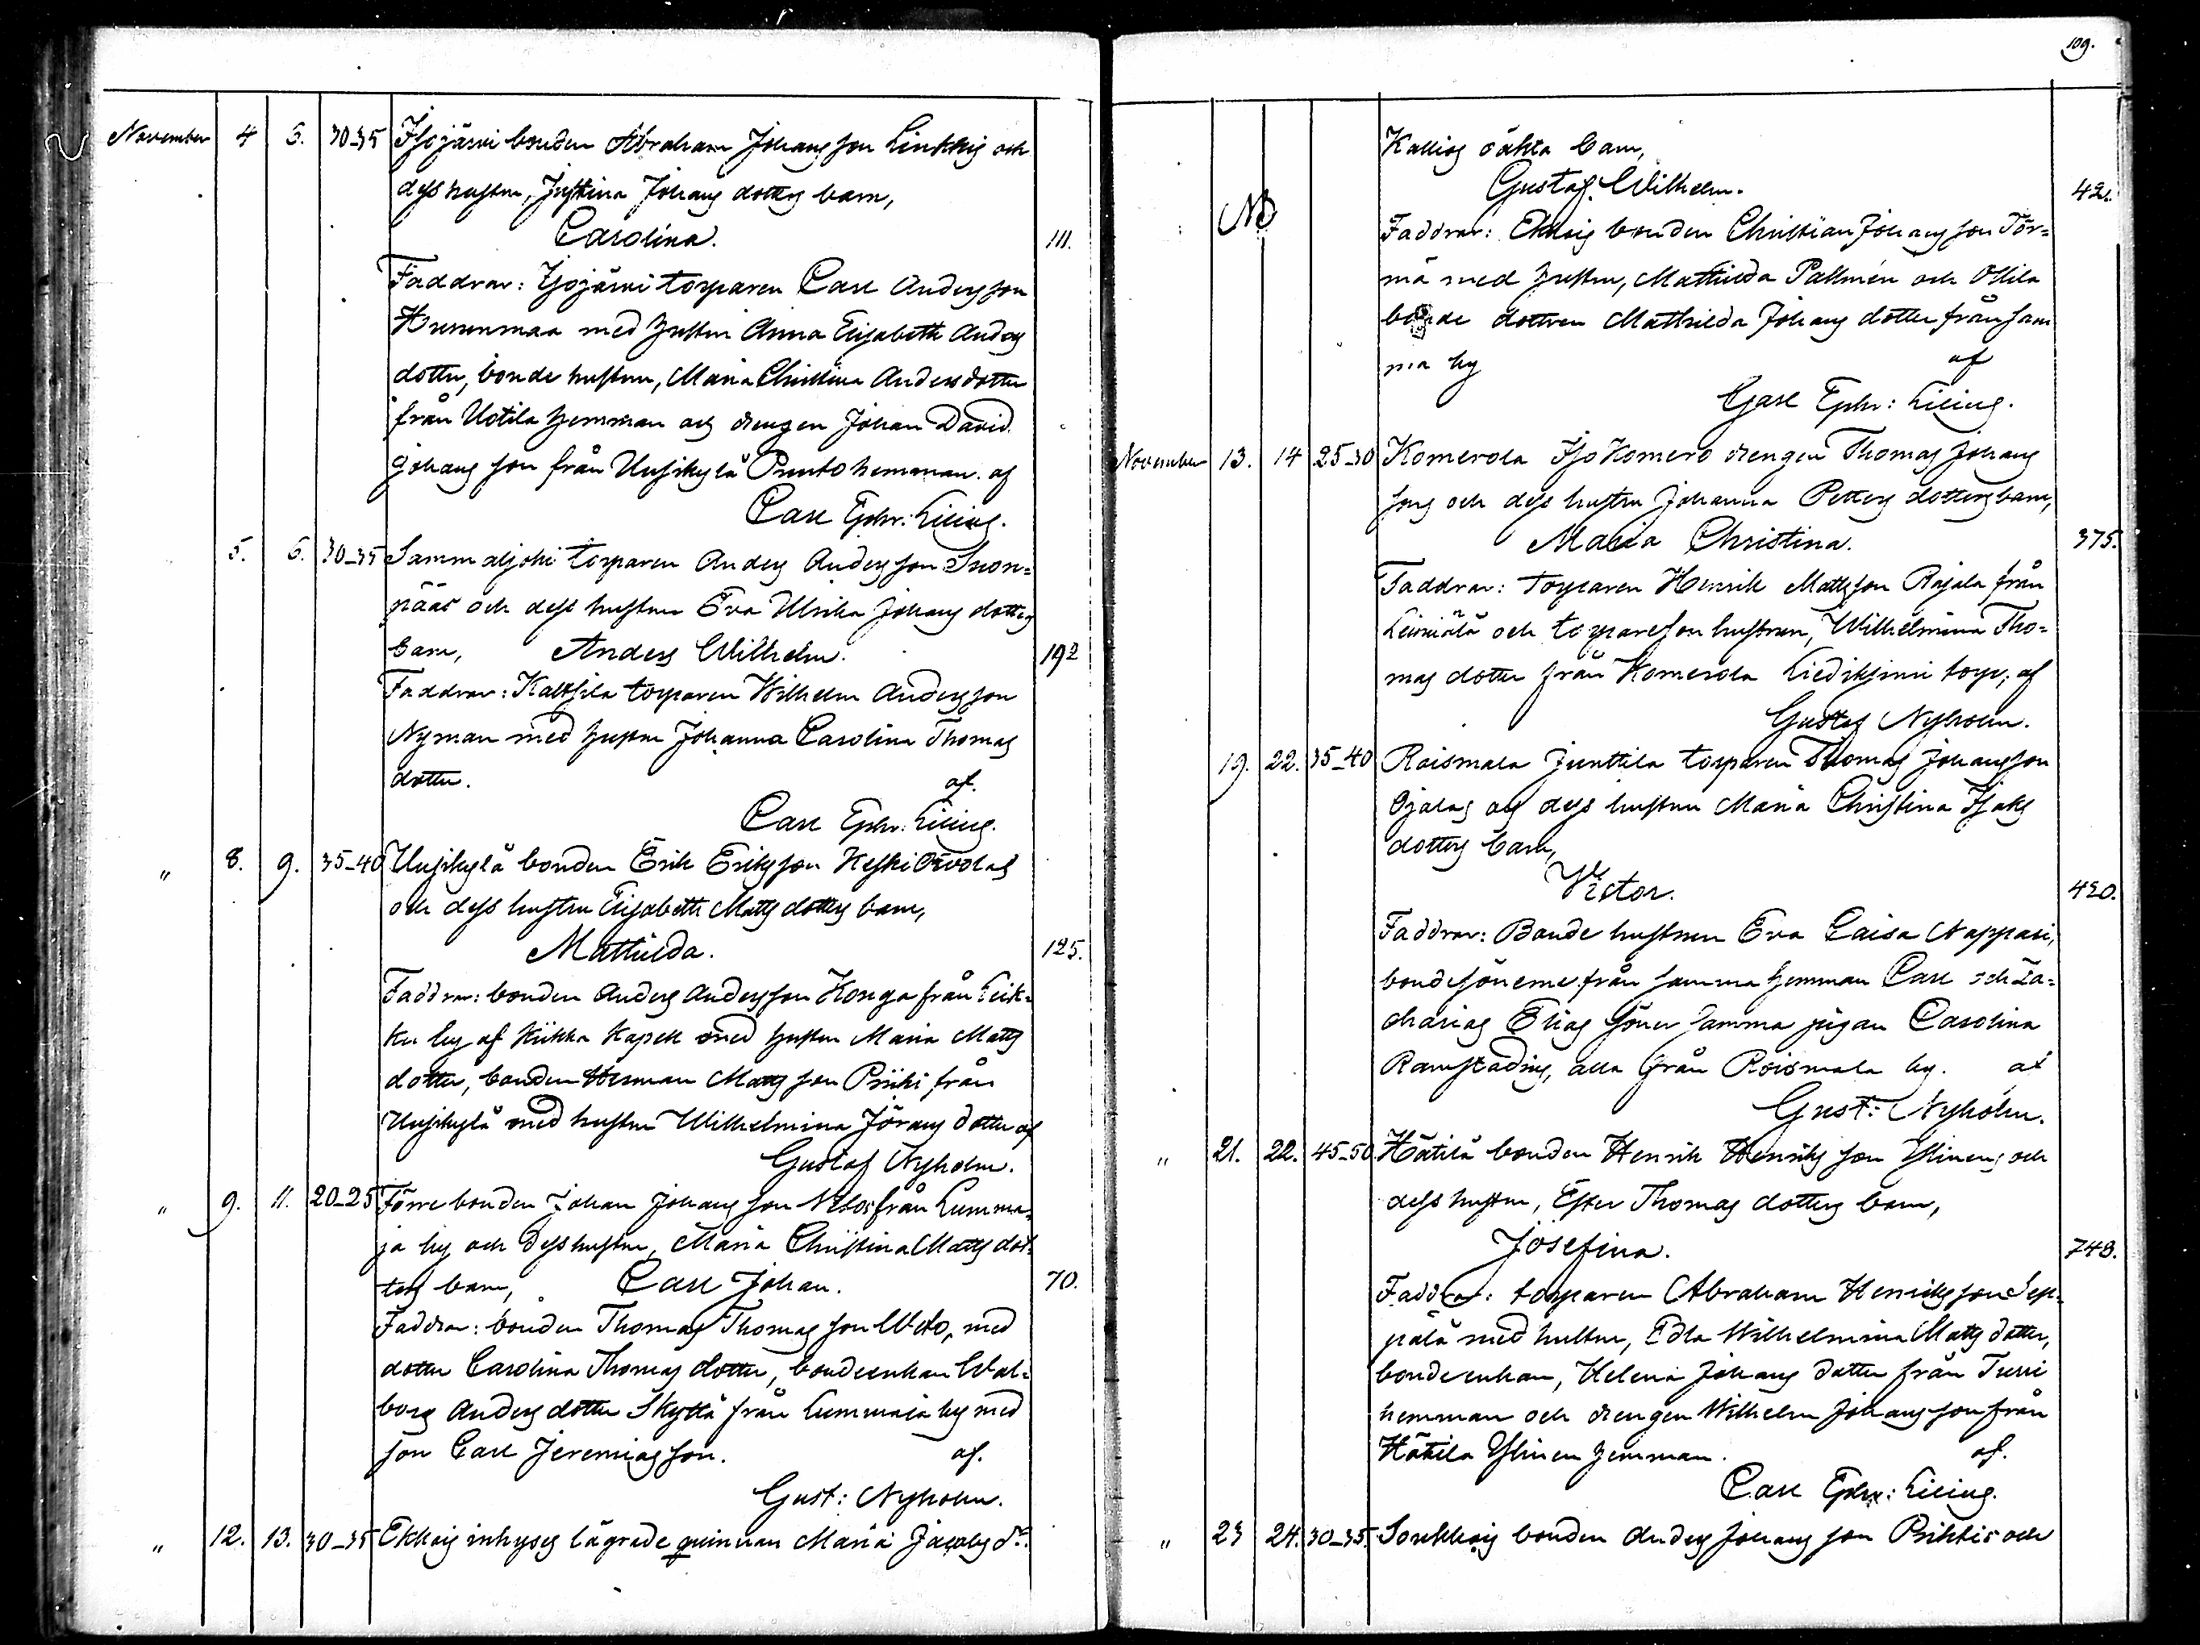 November 4 5. 30-35 Isojärvi bonden Abraham Johansson Linkkis och
dess hustru, Justina Johans dotters barn,
Carolina. 111.
Faddrar: Isojärvi torparen Carl Andersson
med hustru Anna Elisabeth Anders
dotter, bonde hustrun, Maria Christina Andersdotter
från Uotila hemman och drengen Johan David
Johansson från Uusikylä Punto hemman. af
Carl Ephr: Lilius.
5. 6. 30-35 Sammaljoki torparen Anders Andersson Suon=
pääs och dess hustru Eva Ulrika Johans dotters
barn, Anders Wilhelm. 192
Faddrar: Kaltsila torparen Wilhelm Andersson
Nyman med hustru Johanna Carolina Thomas
dotter. af.
Carl Ephr: Lilius.
" 8. 9. 35-40 Uusikylä bonden Erik Eriksson Keski Orvolas
och dess hustru Elisabeth Matts dotters barn,
Mathilda. 125.
Faddrar: bonden Anders Andersson Konga från Leik=
ku by af Kiikka Kapell med hustru Maria Matts
dotter, bonden Herman Mattsson Priiki från
Uusikylä med hustru Wilhelmina Jörans dotter af
Gustaf Nyholm.
" 9. 11. 20-25 Förre bonden Johan Johansson från Lumma=
ja by och dess hustru, Maria Christina Matts dot=
ters barn, Carl Johan. 70.
Faddrar: bonden Thomas Thomasson med
dotter Carolina Thomas dotter, bondeenkan Wal=
borg Anders dotter Skyttä från Lummaja by med
son Carl Jeremiasson. af.
Gust: Nyholm.
" 12. 13. 30-35 Ekkois inhyses lägrade quinnan Maria Jacobs dr.
109.
Kallios oäkta barn,
Gustaf Wilhelm. 421.
NB
Faddrar: Ekkois bonden Christian Johansson Tör=
mä med hustru, Mathilda Pallmén och Ollila
bonde dottren Mathilda Johans dotter från sam
ma by af
Carl Ephr: Lilius.
November 13. 14 25-30 Komerola Iso Komero drengen Thomas Johans
sons och dess hustru Johanna Petters dotters barn,
Maria Christina. 375.
Faddrar: torparen Henrik Mattsson Rajala från
Leiniälä och torpareson hustrun, Wilhelmina Tho=
mas dotter från Komerola torp; af
Gustaf Nyholm.
19. 22. 35-40 Roismala Junttila torparen Thomas Johansson
Ojalas och dess hustru Maria Christina Isaks
dotters barn,
Victor. 420.
Faddrar: Bonde hustrun Eva Caisa Nappari,
bondesönerne från samma hemman Carl och Za=
charias Elias söner samma pigan Carolina
Ramstadius, alla från Roismala by. af
Gust: Nyholm.
" 21. 22. 45-50. Hätilä bonden Henrik Henriksson Ylinens och
dess hustru, Ester Thomas dotters barn,
Josefina. 748.
Faddrar: torparen Abraham Henriksson Sep=
pälä med hustru, Edla Wilhelmina Matts dotter,
bondeenkan, Helena Johans dotter från Turri
hemman och drengen Wilhelm Johansson från
Hätilä Ylinen hemman. af.
Carl Ephr: Lilius.
" 23 24. 30-35. bonden Anders Johansson och